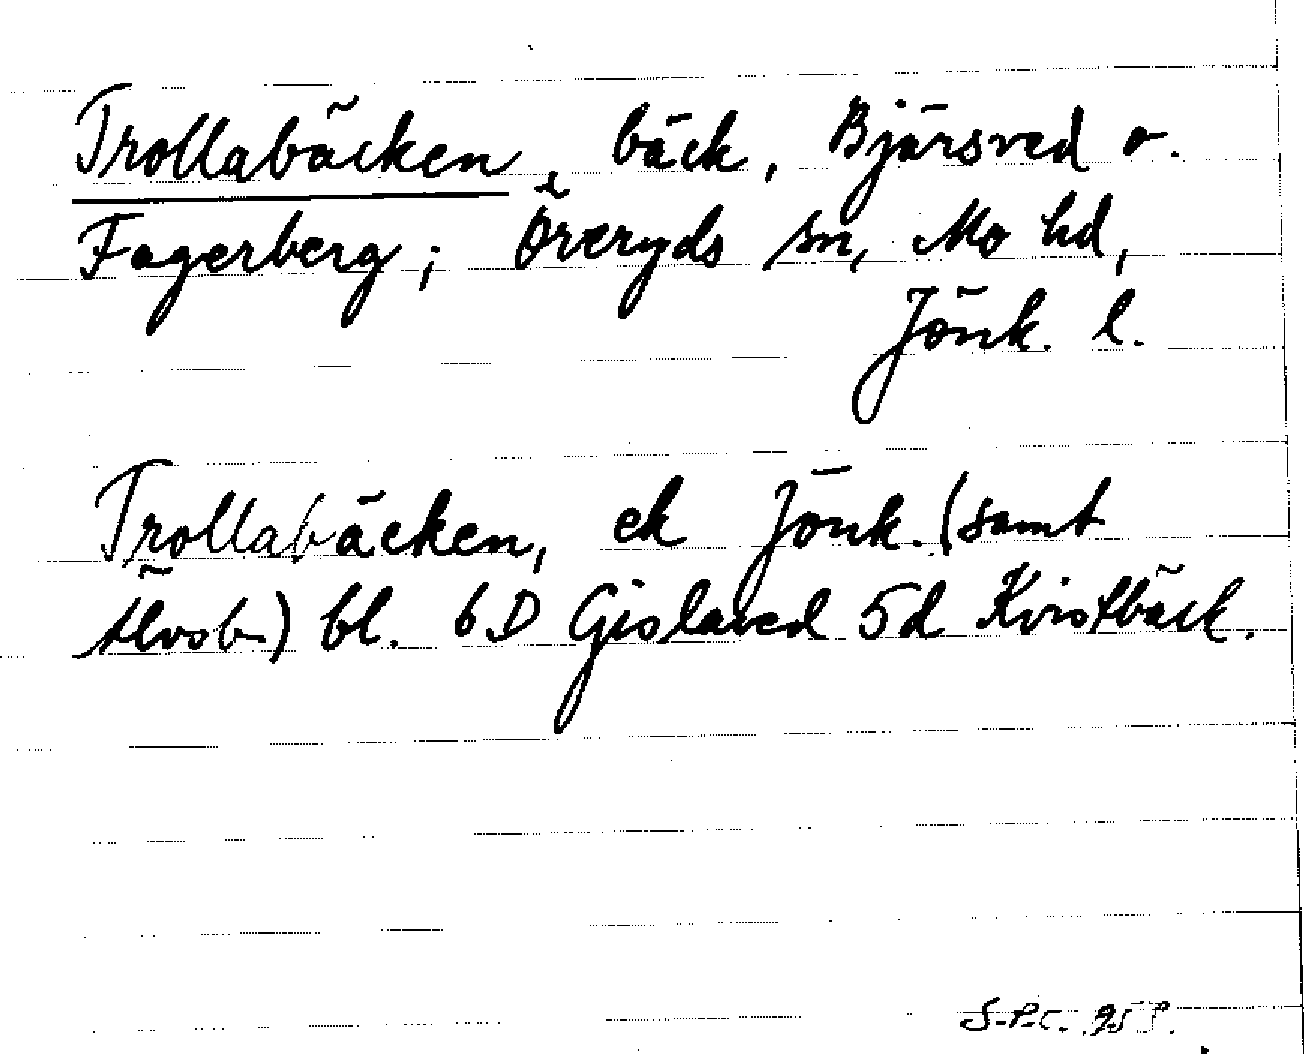 Trollabäcken, bäck, Bjärsved o.
Fagerberg; Öreryds sn, Mo hd,
Jönk. l.
Trollabäcken, ek Jönk. (samt
Älvsb.) bl. 6D Gislaved 5d Kvistbäck.